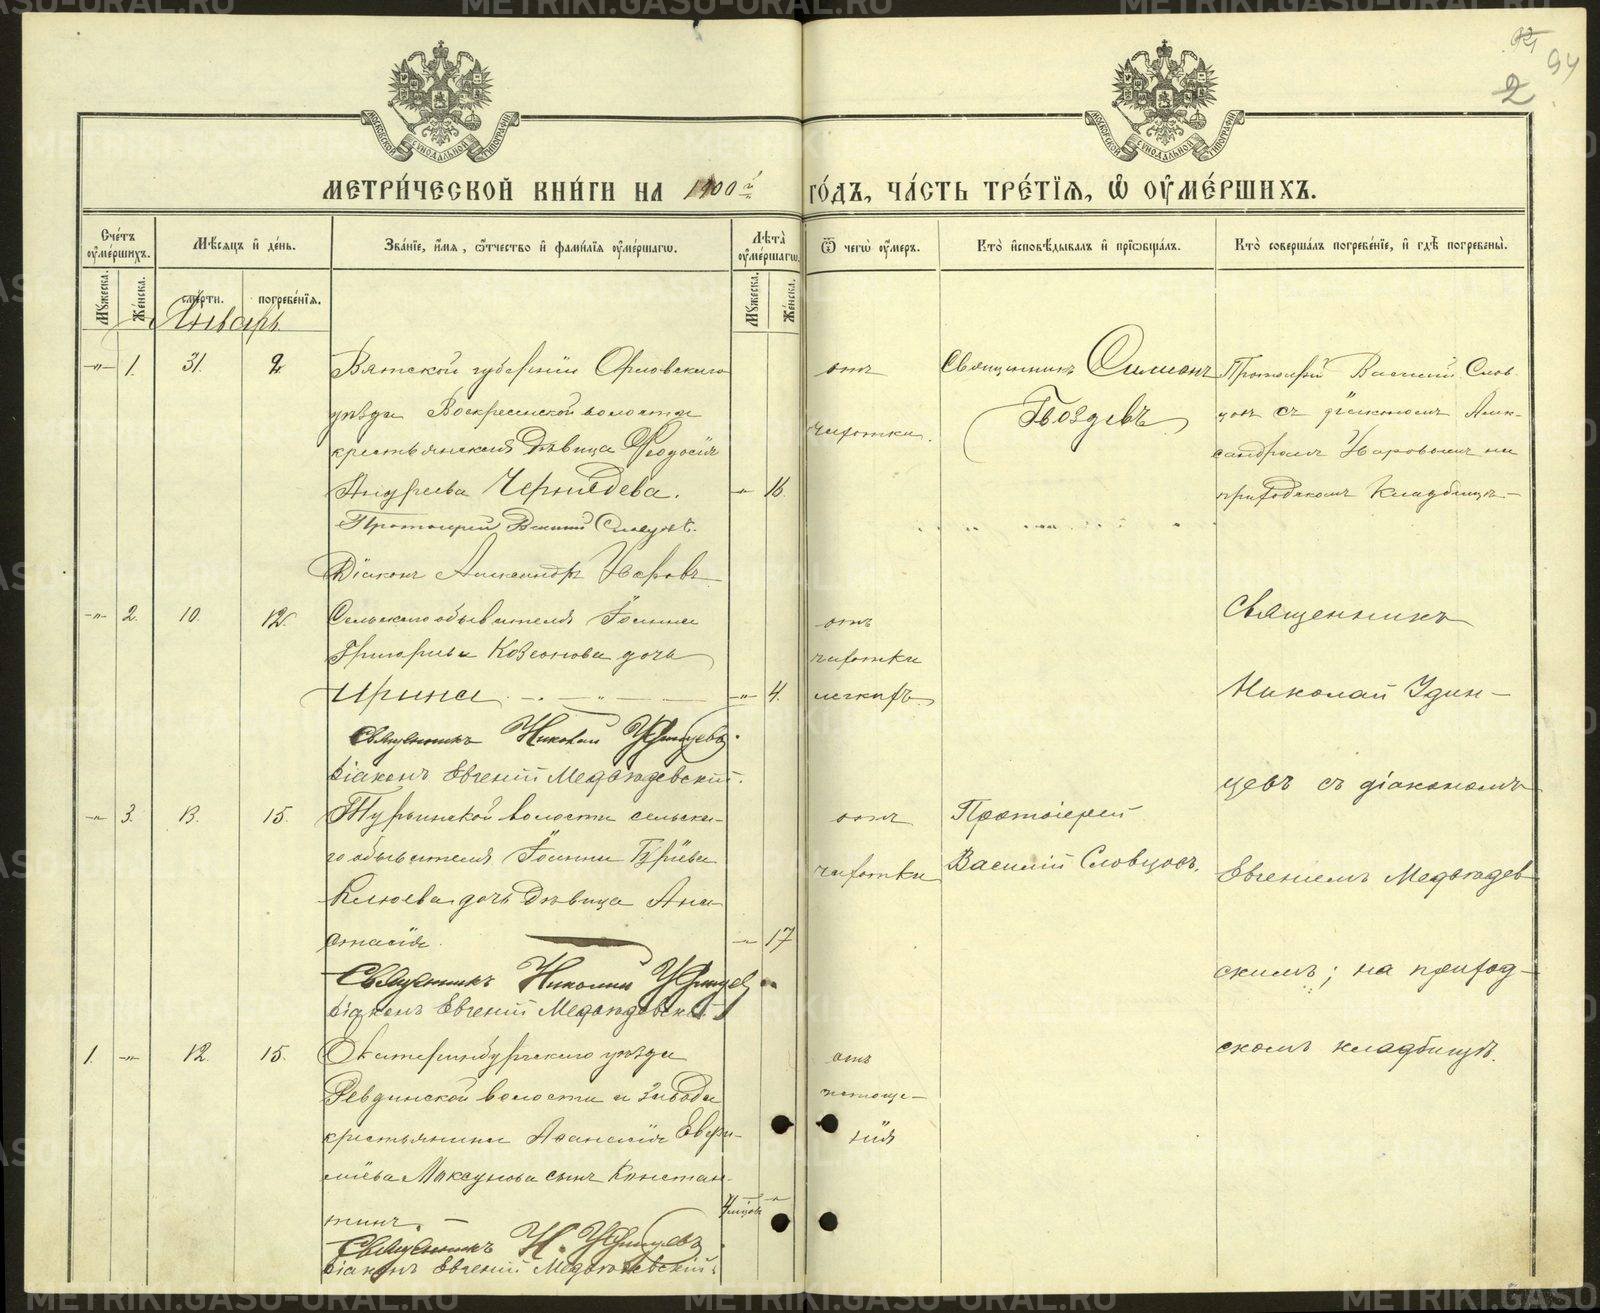 94
2
МОСКОВСКОЙ СѴНОДАЛЬНОЙ ТИПОГРАФІИ
МОСКОВСКОЙ СѴНОДАЛЬНОЙ ТИПОГРАФІИ
МЕТРИ́ЧЕСКОЙ КНИ́ГИ НА 1900 й ГО́ДЪ, ЧА́СТЬ ТРЕ́ТЇѦ, Ѽ ОУМЕ́РШИХЪ.
Сче́тъ оуме́ршихъ.
Мѣ́сѧцъ и҆ де́нь.
Зва́нїе, и҆́мѧ, ѻ҆́тчество и҆ фами́лїѧ оуме́ршагѡ.
Лѣ́та оуме́ршагѡ.
Ѿ чегѡ̀ оу́меръ.
Кто̀ и҆сповѣ́дывалъ и҆ прїѡбща́лъ.
Кто̀ соверша́лъ погребе́нїе, и҆ гдѣ̀ погребены̀.
Мꙋ́жеска.
Же́нска.
сме́рти.
погребе́нїѧ.
Мꙋ́жеска.
Же́нска.
Январь
-"- 1. 31. 2
Вятской губерніи Орловскаго
уѣзда Воскресенской волости
крестьянская дѣвица Феодосія
Андреева Чернядева. -"- 16.
Протоіерей Василій Словцовъ.
Діаконъ Александръ Уваровъ
отъ
чахотки.
Священникъ Симеонъ
Гвоздевъ
Протоіерей Василій Слов-
цовъ съ діакономъ Алек-
сандромъ Уваровымъ на
приходскомъ кладбищѣ
-"- 2. 10. 12.
Сельскаго обывателя Іоанна
Григорьева Козіонова дочь
Ирина -"- 4.
Священникъ Николай Удинцевъ.
діаконъ Евгеній Медвѣдевскій.
отъ
чахотки
легкихъ.
Священникъ
Николай Удин-
цевъ съ діакономъ
Евгеніемъ Медвѣдев
скимъ; на приход-
скомъ кладбищѣ.
-"- 3. 13. 15.
Турьинской волости сельска-
го обывателя Іоанна
Клюева дочь дѣвица Ана
стасія. -"- 17
Священникъ Николай Удинцевъ
діаконъ Евгеній Медвѣдевскій
отъ
чахотки
Протоіерей
Василій Словцовъ.
1. -"- 12. 15.
Екатеринбургскаго уѣзда
Ревдинской волости и завода
крестьянина Афанасія Евфи-
міева Максунова сынъ Констан-
тинъ. 4 мѣсяц. -"-
Священникъ Н. Удинцевъ.
діаконъ Евгеній Медвѣдевскій.
отъ
истоще-
нія
METRIKI.GASU-URAL.RU